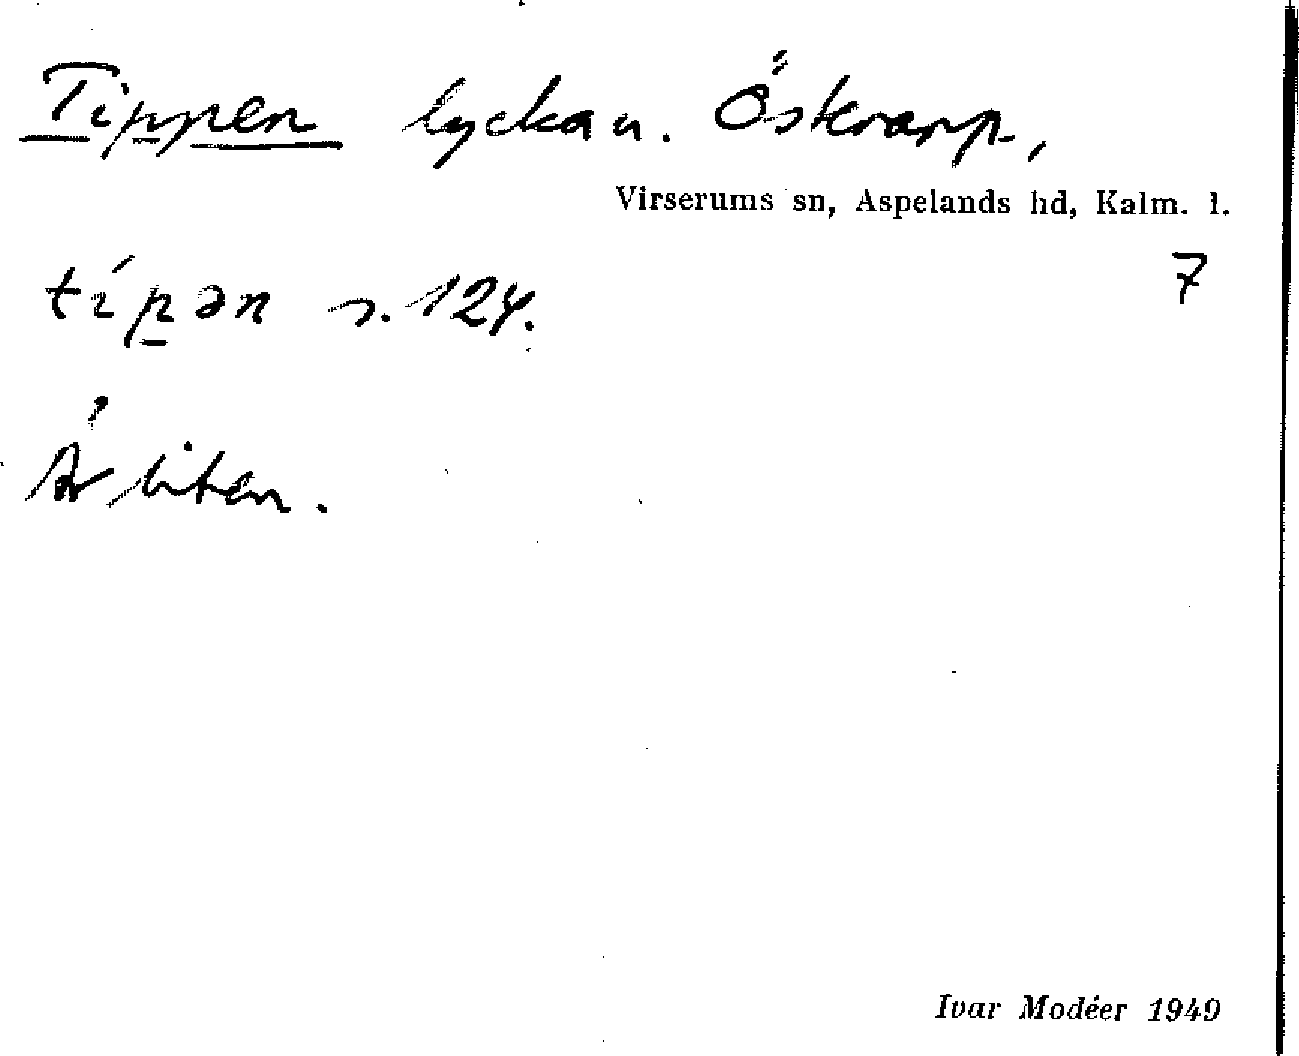 Tippen lycka u. Österarp,
Virserums sn, Aspelands hd, Kalm. l.
7
típən s. 124.
Är liten.
Ivar Modéer 1949